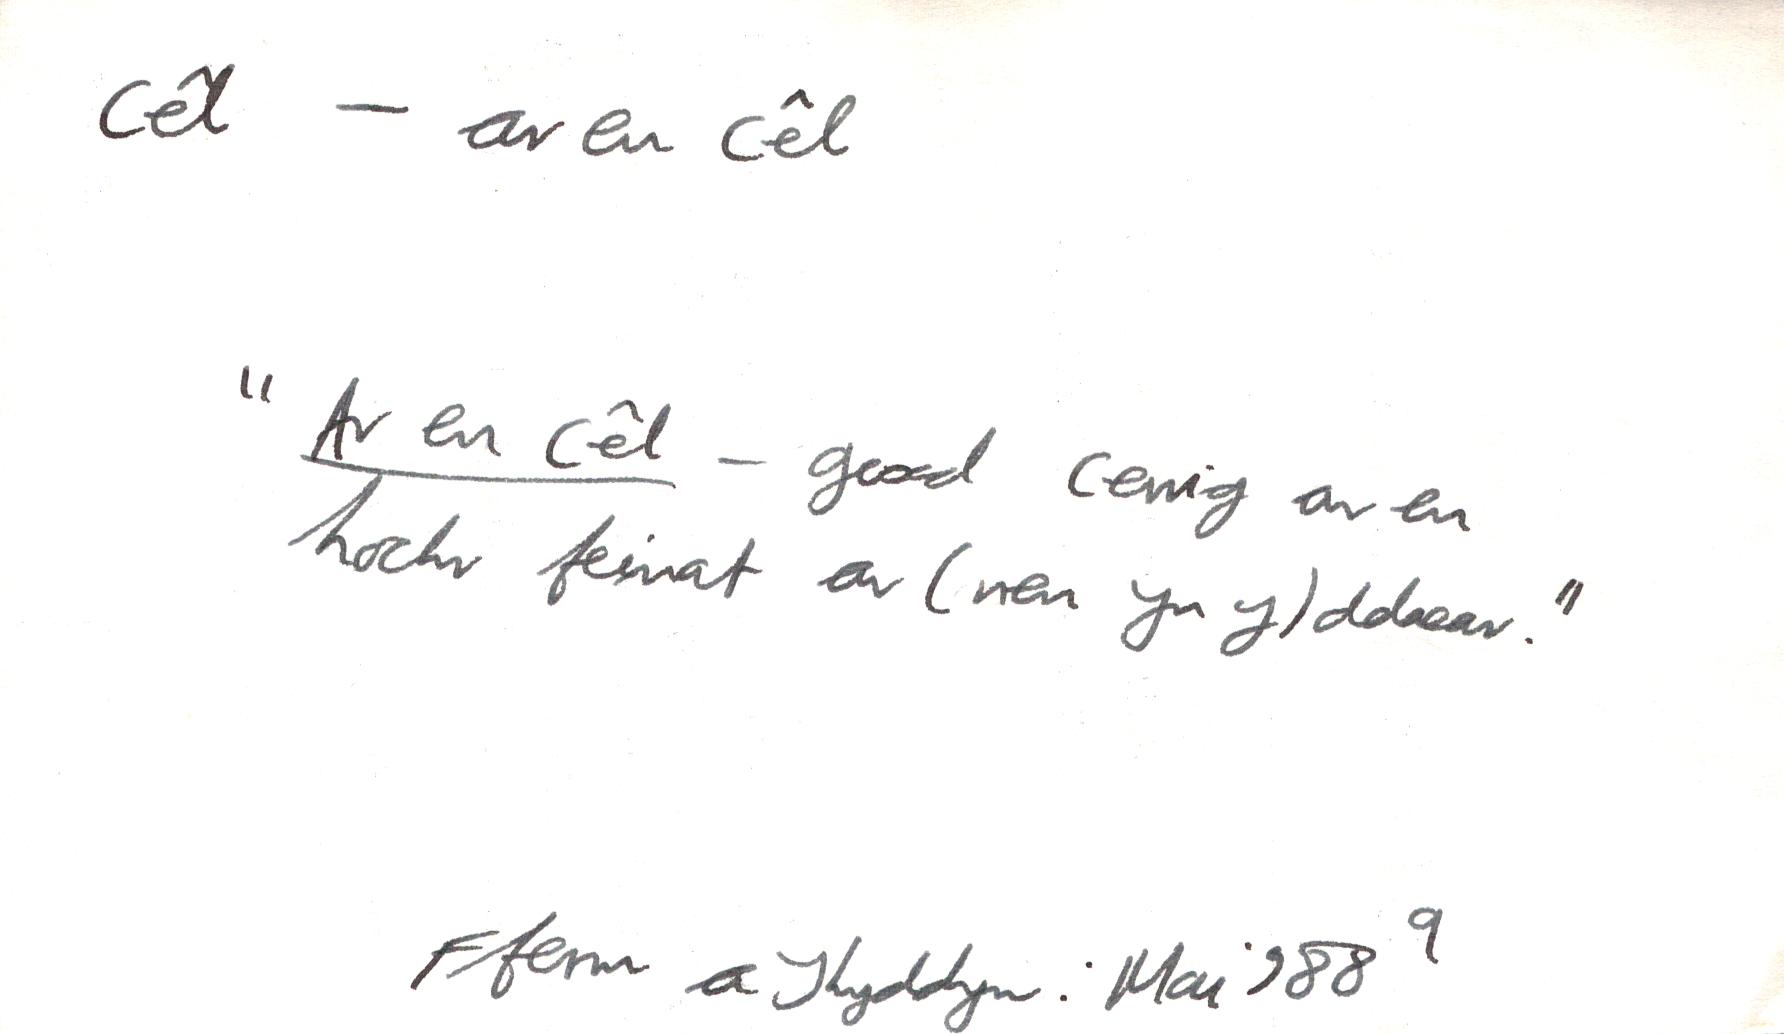 Cêl — ar eu cêl
"Ar eu cêl — gosod cerrig ar eu
hochr feinat ar (neu yn y) ddaear."
Fferm a Thyddyn: Mai '88 9